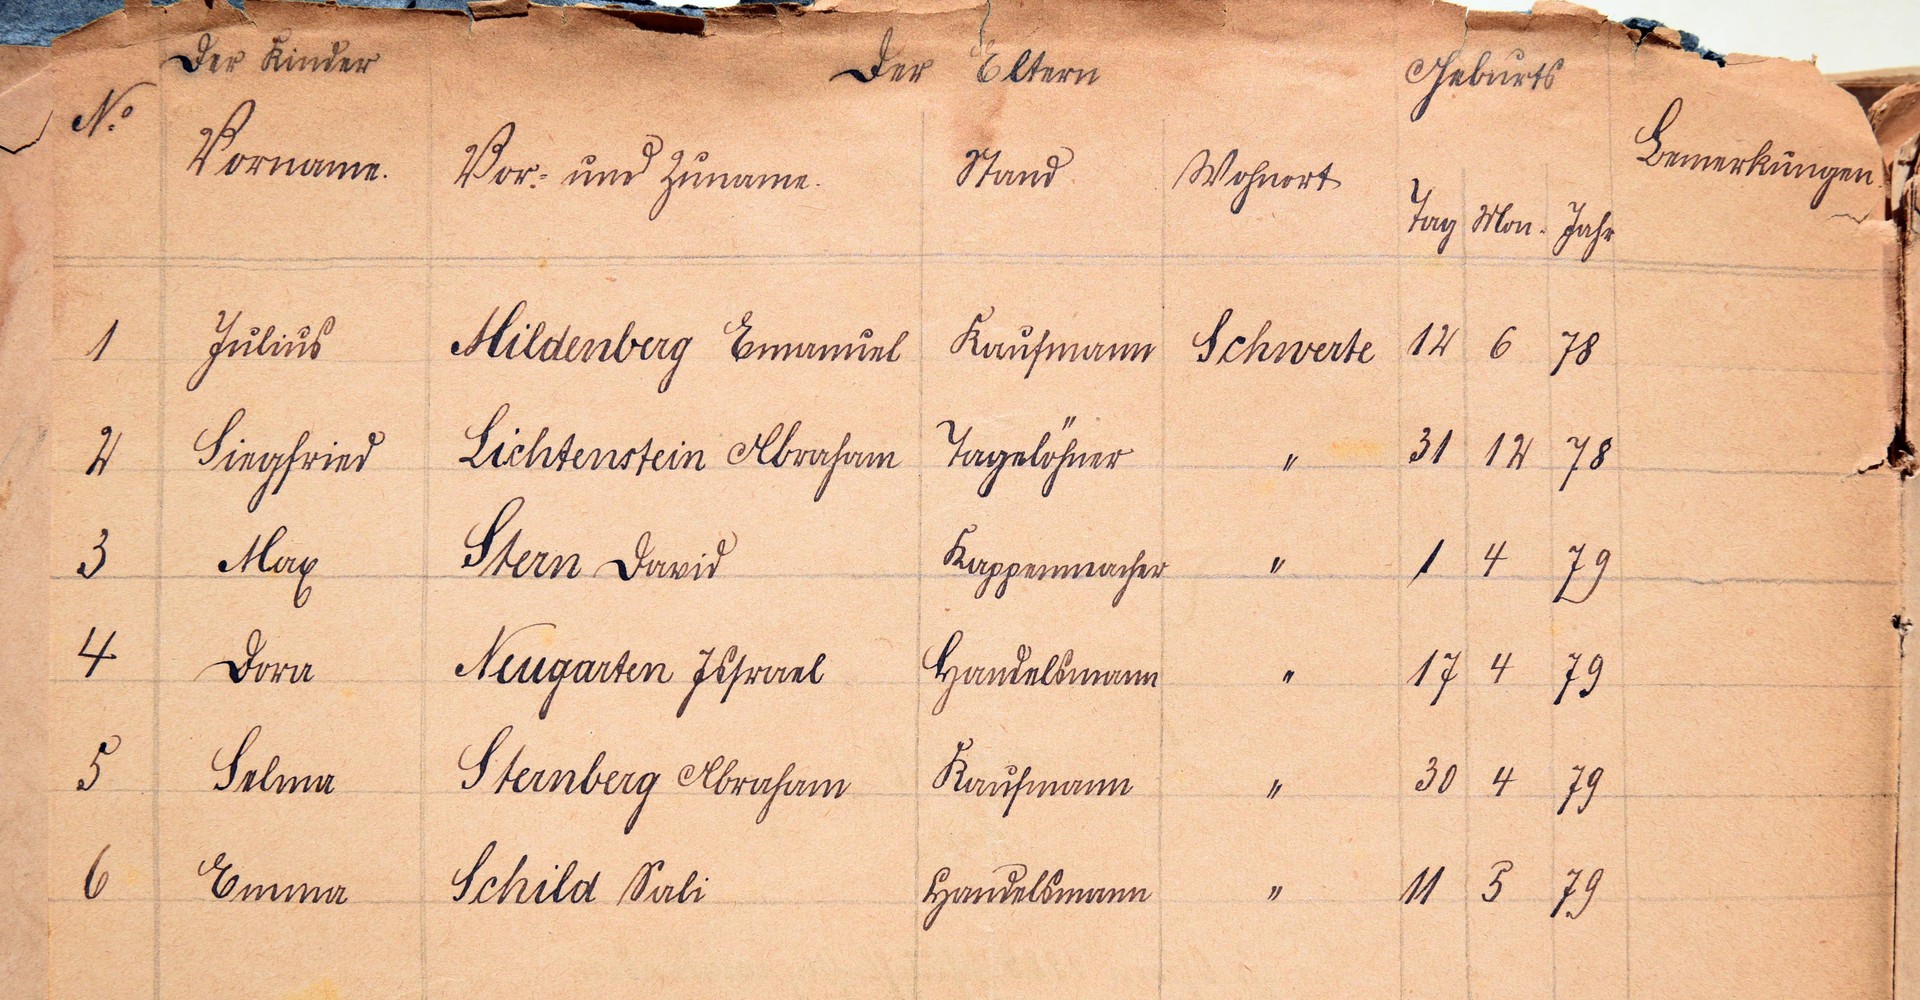 Der Kinder Der Eltern Geburts
No. Vorname. Vor- und Zuname. Stand Wohnort Tag Mon. Jahr Bemerkungen
1 Julius Mildenberg Emanuel Kaufmann Schwerte 12 6 78
2 Siegfried Lichtenstein Abraham Tagelöhner " 31 12 78
3 Max Stern David Kappenmacher " 1 4 79
4 Dora Neugarten Issrael Handelsmann " 17 4 79
5 Selma Sternberg Abraham Kaufmann " 30 4 79
6 Emma Schild Sali Handelsmann " 11 5 79